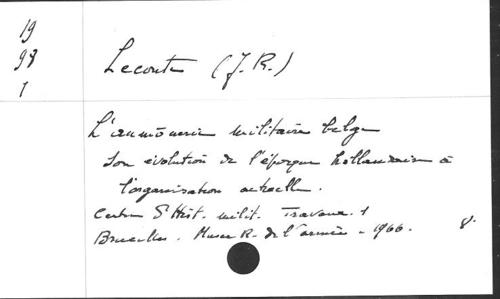 19
98
1
Leconte (J. R.)
L'aumônerie militaire belge
Son évolution de l'époque hollandaise à
l'organisation actuelle.
Centre d'Hist. milit. Travaux. 1
Bruxelles. Musée R. de l'armée - 1966. 8°